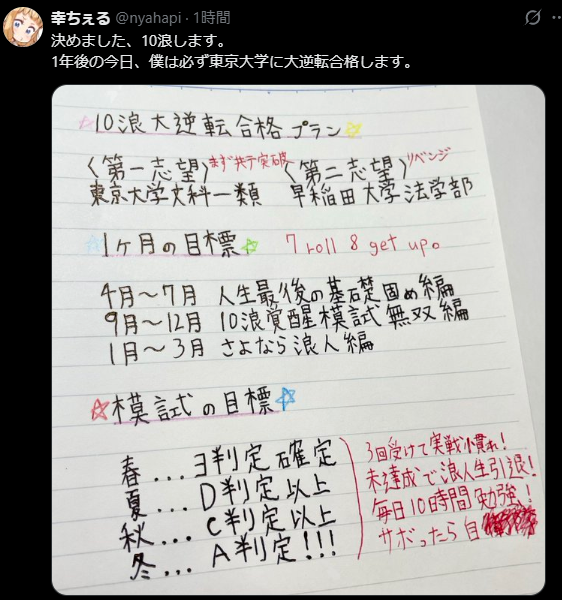 幸ちぇる @nyahapi · 1時間
決めました、10浪します。
1年後の今日、僕は必ず東京大学に大逆転合格します。
10浪大逆転合格プラン
〈第一志望〉まず共テ突破
東京大学文科一類
〈第二志望〉リベンジ
早稲田大学法学部
1ヶ月の目標
7 roll 8 get up。
4月～7月 人生最後の基礎固め編
9月～12月 10浪覚醒模試無双編
1月～3月 さよなら浪人編
模試の目標
春...ヨ判定確定
夏...D判定以上
秋...C判定以上
冬...A判定!!!
3回受けて実戦慣れ!
未達成で浪人生引退!
毎日10時間勉強!
サボったら自